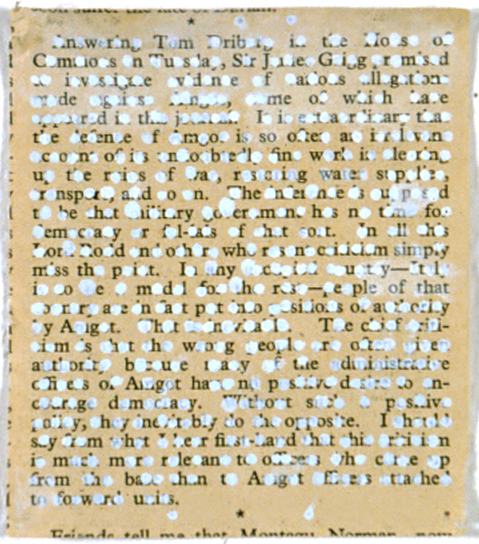 Answering Tom Driberg in the House of
Commons on Tuesday, Sir James Grigg promised
to investigate evidence of various allegations
made against Amgot, some of which have
appeared in this journal. It is extraordinary that
the defence of Amgot is so often an irrelevant
account of its undoubtedly fine work in clearing
up the ruins of war, restoring water supplies,
transport, and so on. The inference is supposed
to be that military government has no time for
democracy or fol-lols of that sort. In all this
Lord Rodd and others who resent criticism simply
miss the point. In any occupied country—Italy
is to be a model for the rest—people of that
country are in fact put into positions of authority
by Amgot. That is inevitable. The chief criti-
cism is that the wrong people are often given
authority because many of the administrative
officers of Amgot have no positive desire to en-
courage democracy. Without such a positive
policy, they inevitably do the opposite. I should
say from what I hear first-hand that this criticism
is much more relevant to officers who come up
from the base than to Amgot officers attached
to forward units.
Friends tell me that Montagu Norman, now